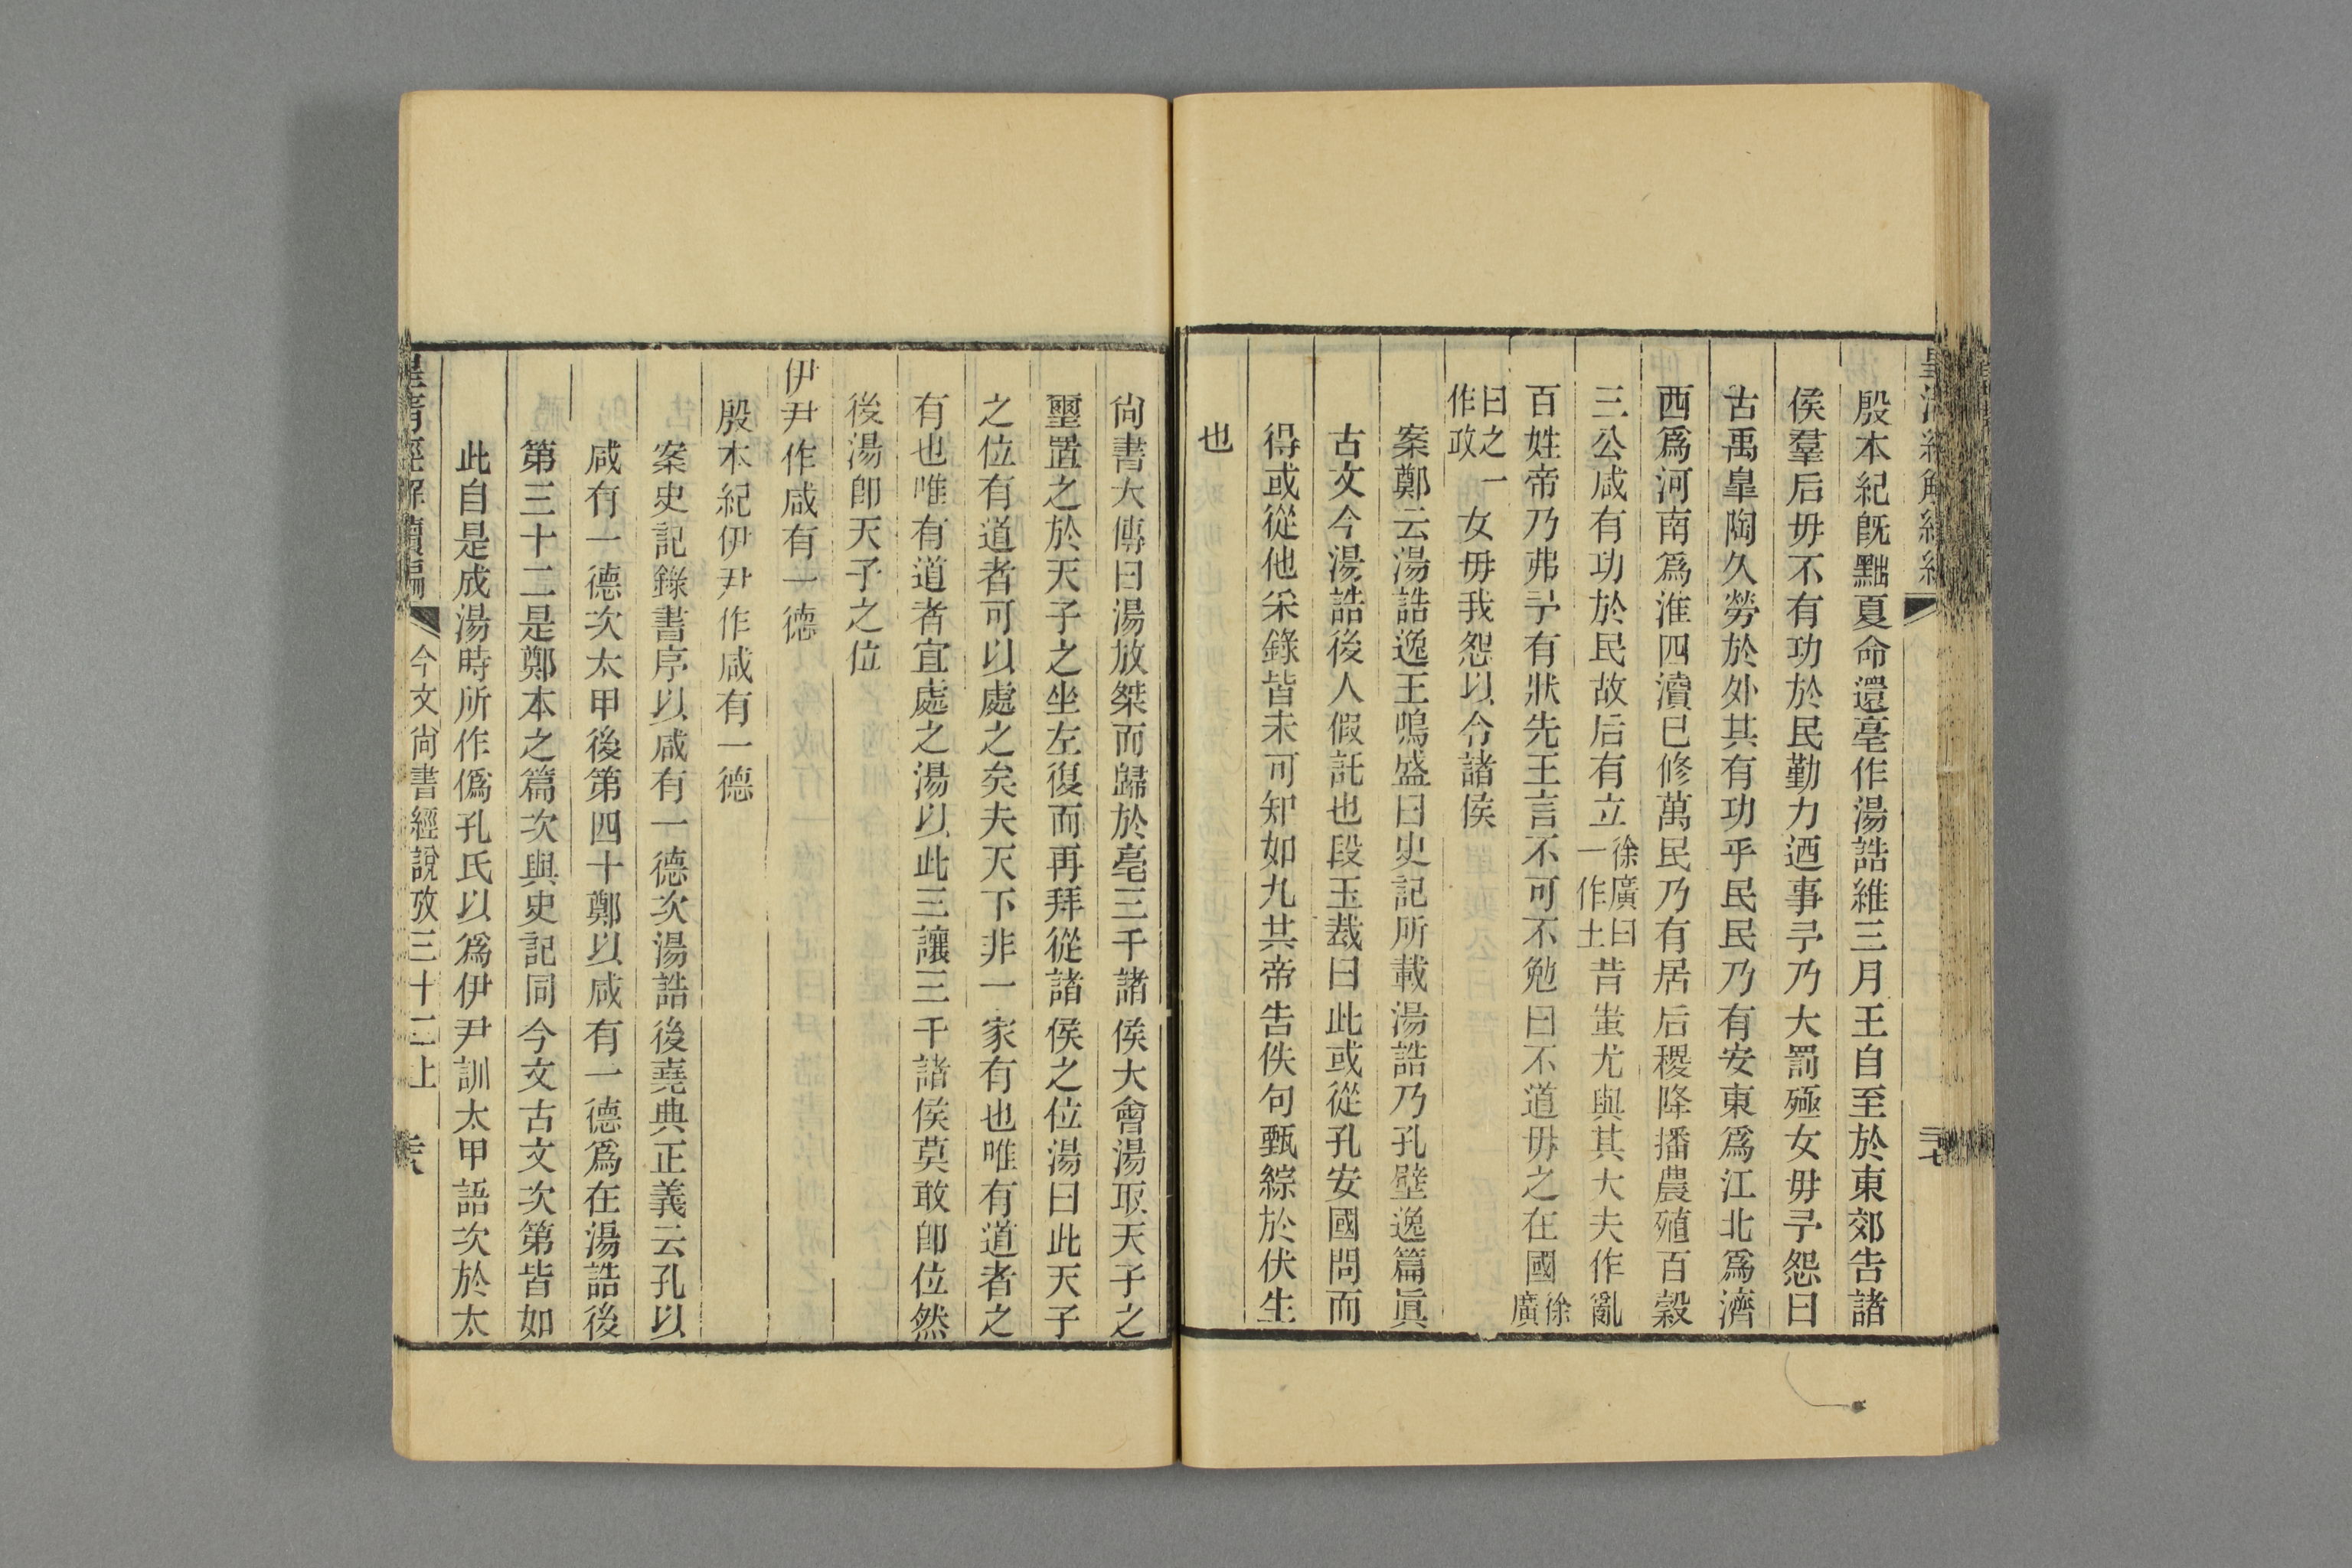 殷本紀既黜夏命還亳作湯誥維三月王自至於東郊告諸
侯羣后毋不有功於民勤力迺事予乃大罰殛女毋予怨曰
古禹臯陶久勞於外其有功乎民民乃有安東爲江北爲濟
西爲河南爲淮四瀆已修萬民乃有居后稷降播農殖百穀
三公咸有功於民故后有立徐廣曰一作土昔蚩尤與其大夫作亂
百姓帝乃弗予有狀先王言不可不勉曰不道毋之在國徐廣
曰之一作政女毋我怨以令諸侯
案鄭云湯誥逸王鳴盛曰史記所載湯誥乃孔壁逸篇眞
古文今湯誥後人假託也段玉裁曰此或從孔安國問而
得或從他采錄皆未可知如九共帝告佚句甄綜於伏生
也
尚書大傳曰湯放桀而歸於亳三千諸侯大會湯取天子之
璽置之於天子之坐左復而再拜從諸侯之位湯曰此天子
之位有道者可以處之矣夫天下非一家有也唯有道者之
有也唯有道者宜處之湯以此三讓三千諸侯莫敢卽位然
後湯卽天子之位
伊尹作咸有一德
殷本紀伊尹作咸有一德
案史記錄書序以咸有一德次湯誥後堯典正義云孔以
咸有一德次太甲後第四十鄭以咸有一德爲在湯誥後
第三十二是鄭本之篇次與史記同今文古文次第皆如
此自是成湯時所作僞孔氏以爲伊尹訓太甲語次於太
皇清經解續編 今文尚書經說攷三十二上